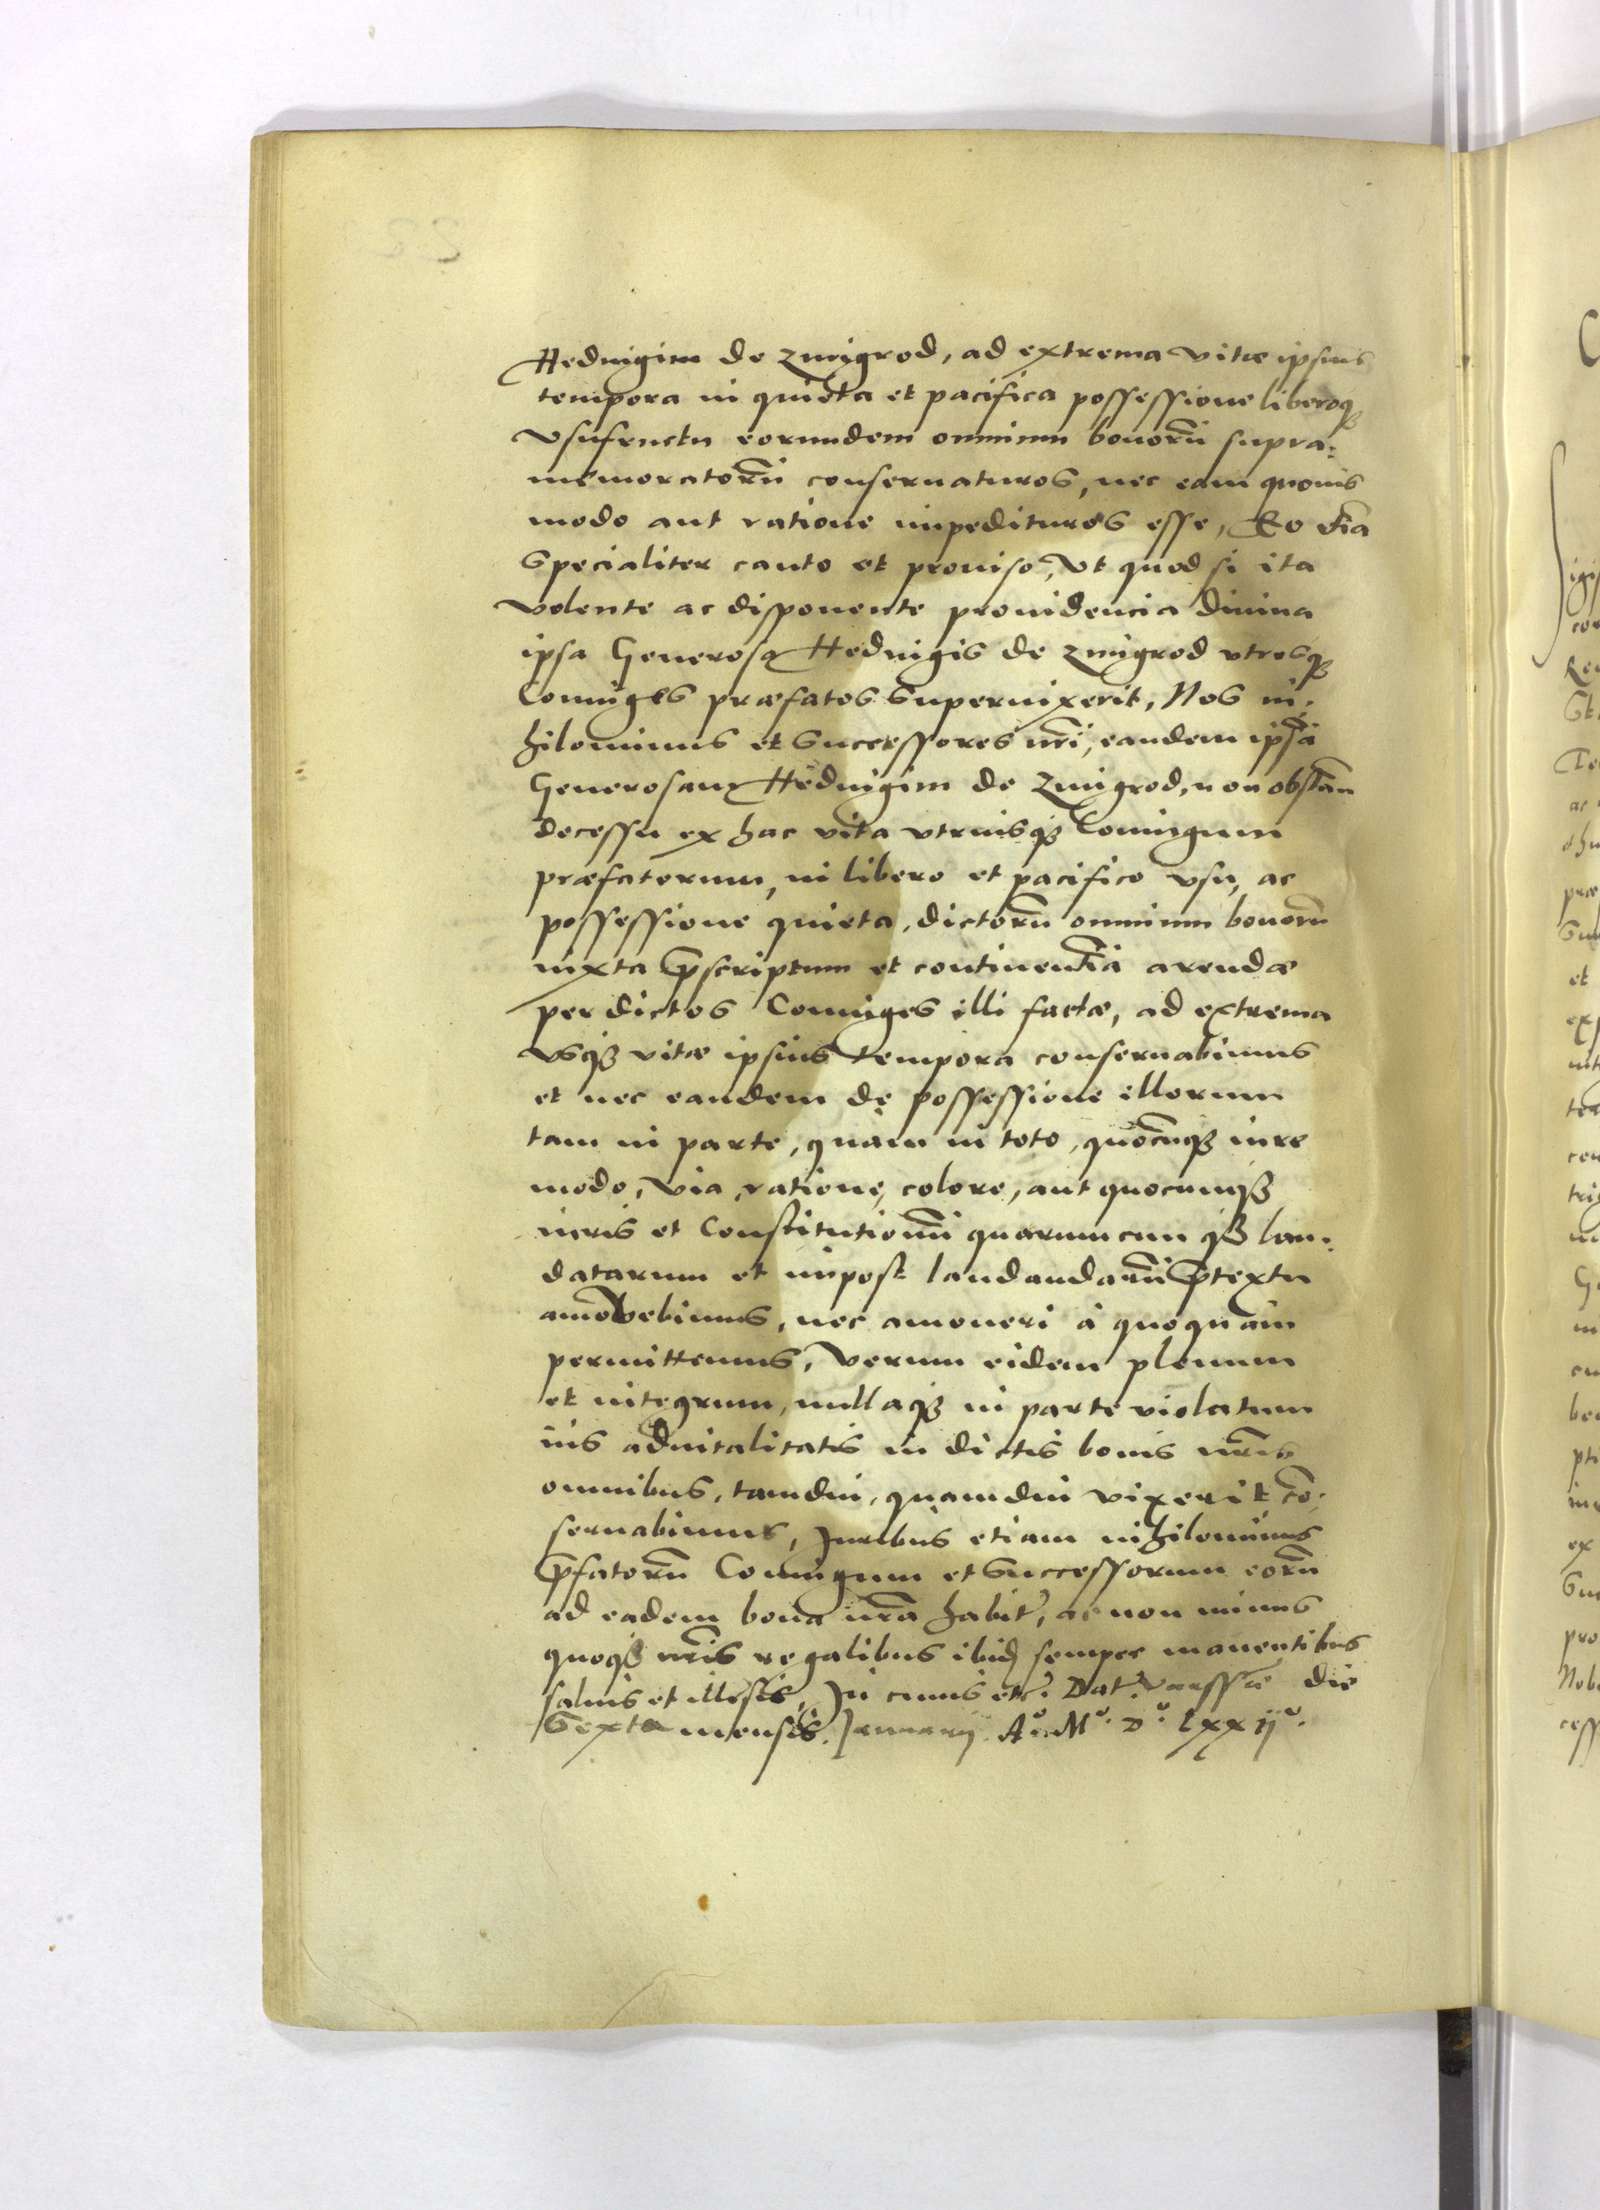 Heduigim de Zmigrod, ad extrema vitæ ipsius
tempora in quieta et pacifica possessione liberoq3
vsufructu eorundem omnium bonorũ supra:
memoratorũ conseruaturos, nec eam quouis
modo aut ratione impedituros esse, Eo etiã
Specialiter cauto et prouiso, Vt quod si ita
volente ac disponente prouidencia diuina
ipsa Generosa Heduigis de Zmigrod vtrosq3
Coniuges præfatos superuixerit, Nos ni.
hilominus et Successores nr̃i, eandem ipsã
Generosam Heduigim de Zmigrod, non obstañ
decessu ex hac vita vtriusq3 Coniugum
præfatorum, in libero et pacifico vsu, ac
possessione quieta, dictorũ omnium bonorũ
iuxta p̃scriptum et continentiã arendæ
per dictos Coniuges illi factæ, ad extrema
vsq3 vitæ ipsius tempora conseruabimus
et nec eandem de possessione illorum
tam in parte, quam in toto, quocũq3 iure
modo, via, ratione, colore, aut quocumq3
iuris et Constitutionũ quarumcumq3 lau.
datarum et impost laudandarũ p̃textu
amouebimus, nec amoueri à quoquam
permittemus, Verum eidem plenum
et integrum, nullaq3 in parte violatum
ius aduitalitatis in dictis bonis nr̃is
omnibus, tamdiu, quamdiu vixerit cõ.
seruabimus, Juribus etiam nihilominus
p̃fatorũ Coniugum et Successorum eorũ
ad eadem bona nr̃a habit̃, ac non minus
quoq3 nr̃is regalibus ibid semper manentibus
saluis et illesis, In cuius etc̃. Dat̃. Varssæ die
Sexta mensis Januarij A°. M°. D°. Lxxij°.